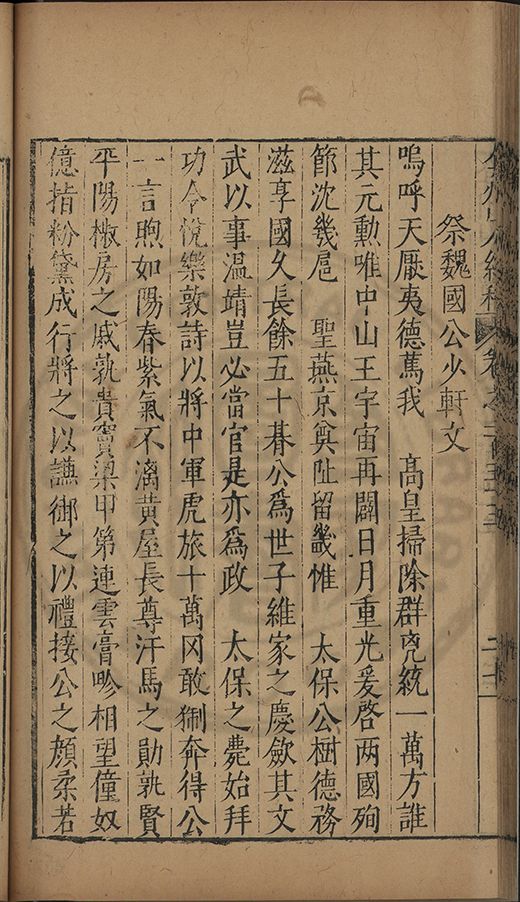 祭魏國公少軒文
嗚呼天厭夷德篤我　高皇掃除群兇統一萬方誰
其元勲唯中山王宇宙再闢日月重光爰啓两國殉
節沈幾扈　聖燕京奠阯留畿惟　太保公樹德務
滋享國久長餘五十朞公爲世子維家之慶斂其文
武以事溫凊豈必當官是亦爲政　太保之薨始拜
功令悅樂敦詩以將中軍虎旅十萬冈敢猘奔得公
一言煦如陽春紫氣不漓黄屋長尊汗馬之勛孰賢
平陽椒房之戚孰貴竇梁甲第連雲膏畛相望僮奴
億指粉黛成行將之以讌御之以禮接公之顔柔若